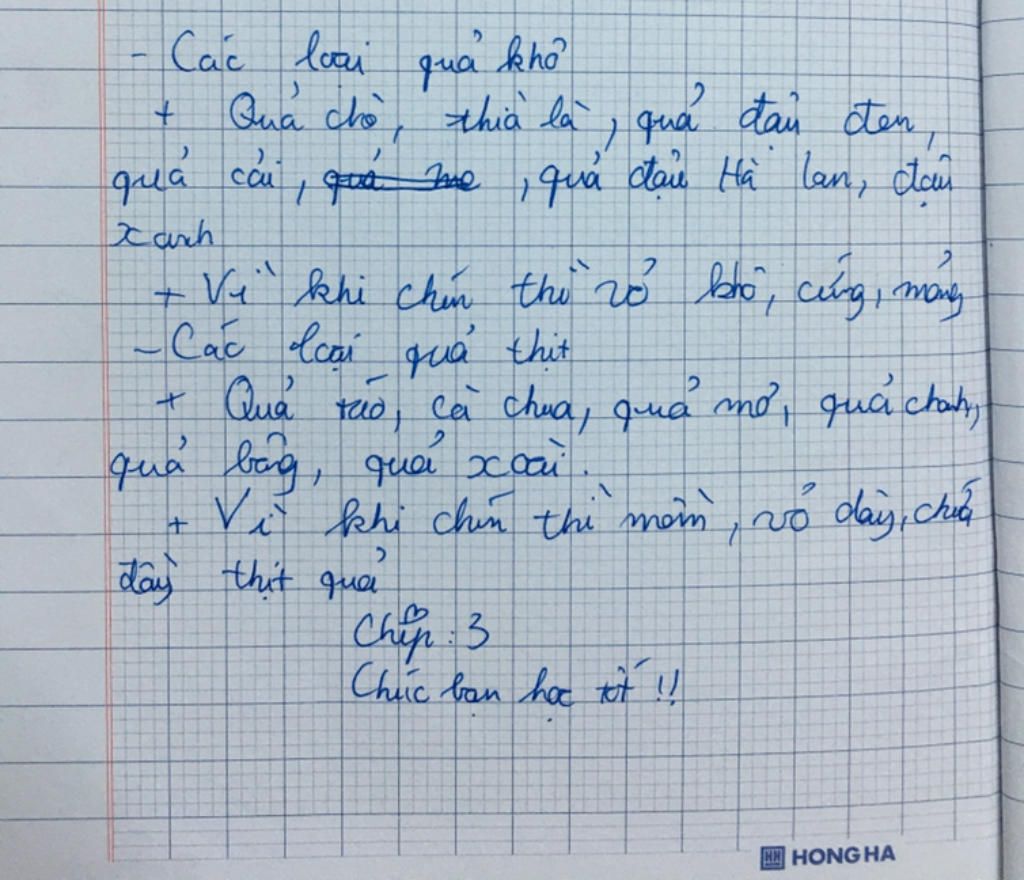 - Các loại quả khô
+ Quả chò, thìa là, quả đậu đen,
quả cải, quả me, quả đậu Hà lan, đậu
xanh
+ Vì khi chín thì vỏ khô, cứng, mỏng
- Các loại quả thịt
+ Quả táo, cà chua, quả mơ, quả chanh,
quả bông, quả xoài.
+ Vì khi chín thì mềm, vỏ dày, chứa
đầy thịt quả
Chíp : 3
Chúc bạn học tốt !!
HH HONG HA